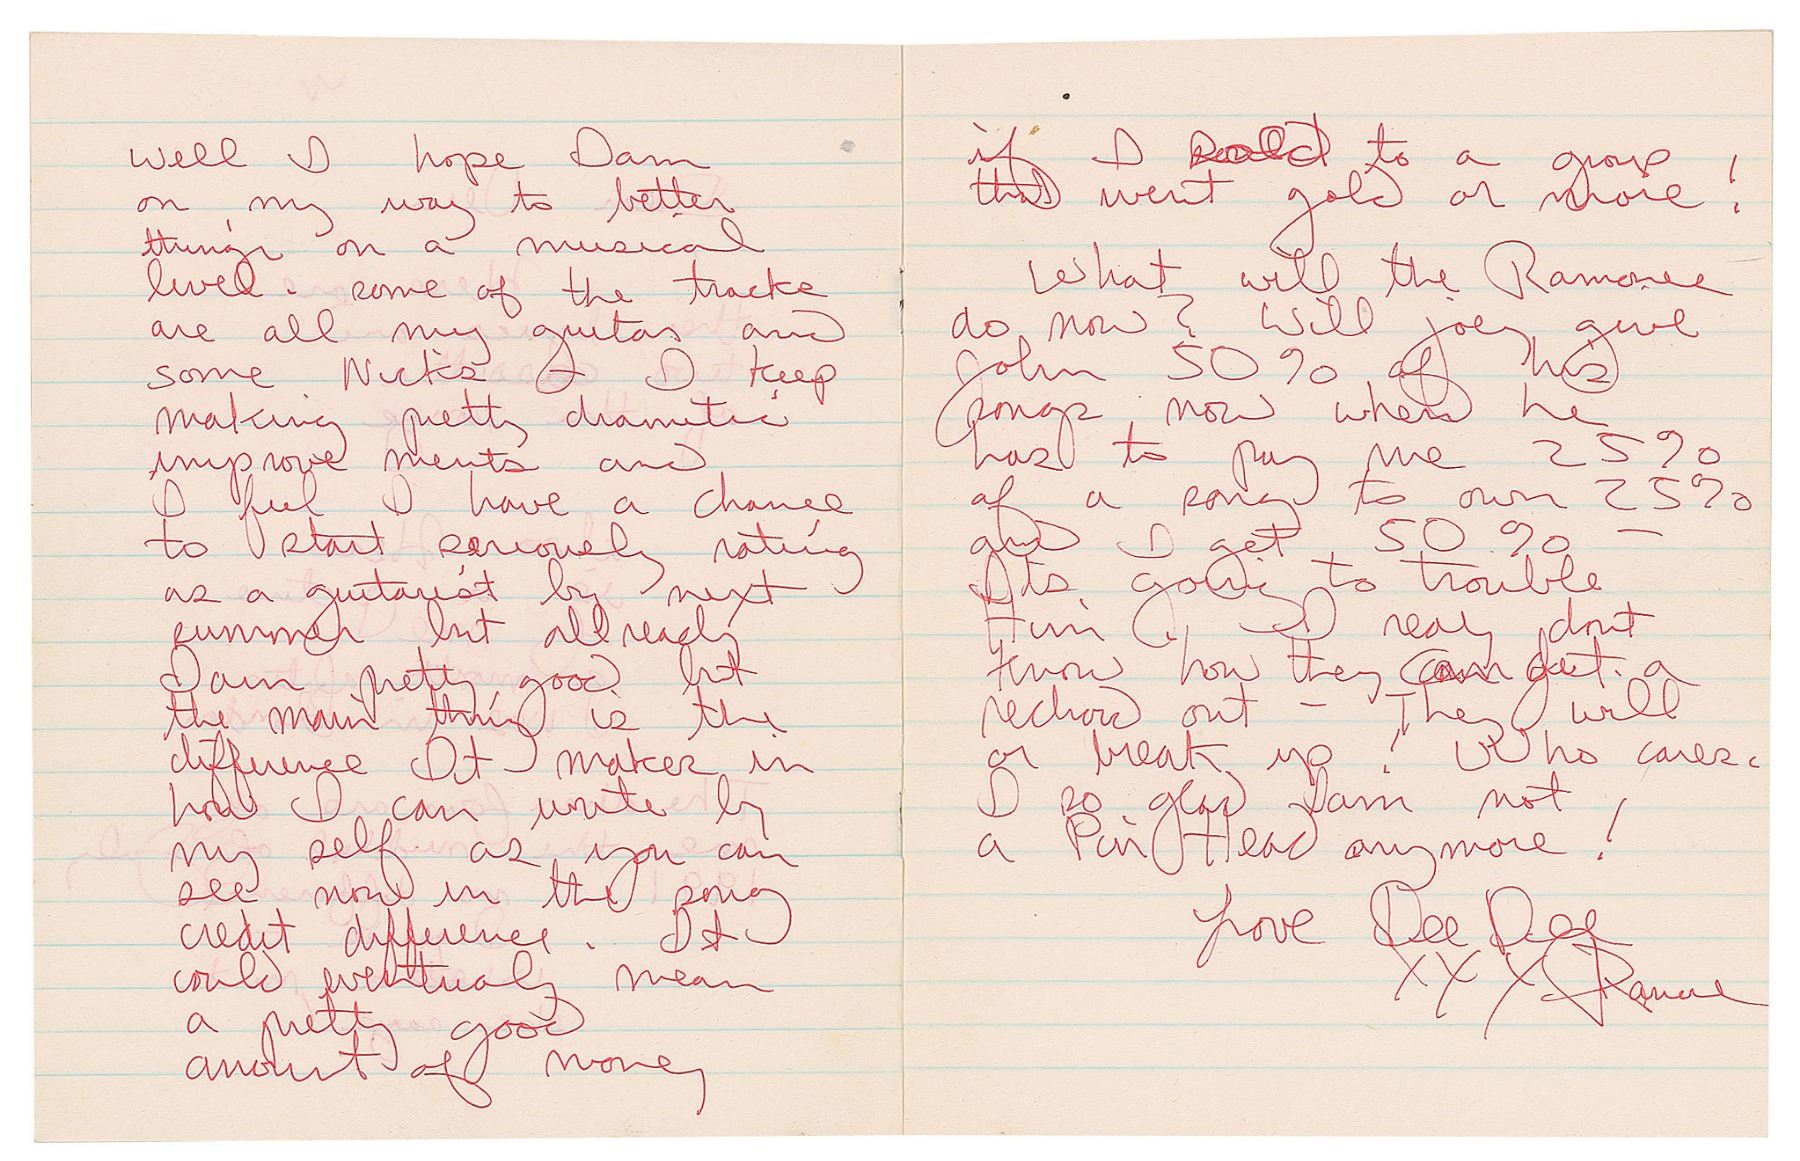 well I hope Iam
on my way to better
things on a musical
level. some of the tracks
are all my guitar and
some Nicks & I keep
making pretty dramatic
improve ments and
I feel I have a chance
to start seriously rating
as a guitarist by next
summer but allready
Iam pretty good but
the main thing is the
difference It makes in
how I can write by
my self as you can
see now in the song
credit difference. It
could eventualy mean
a pretty good
amount of money
if I sold to a group
that went gold or more!
What will the Ramones
do now? Will joey give
John 50% of his
songs now when he
has to pay me 25%
of a song to own 25%
and I get 50% –
Its going to trouble
Him I realy dont
know how they can get a
rechord out – They will
or break up! Who cares.
I so glad Iam not
a Pin Head anymore!
Love Dee Dee
XXX Ramone